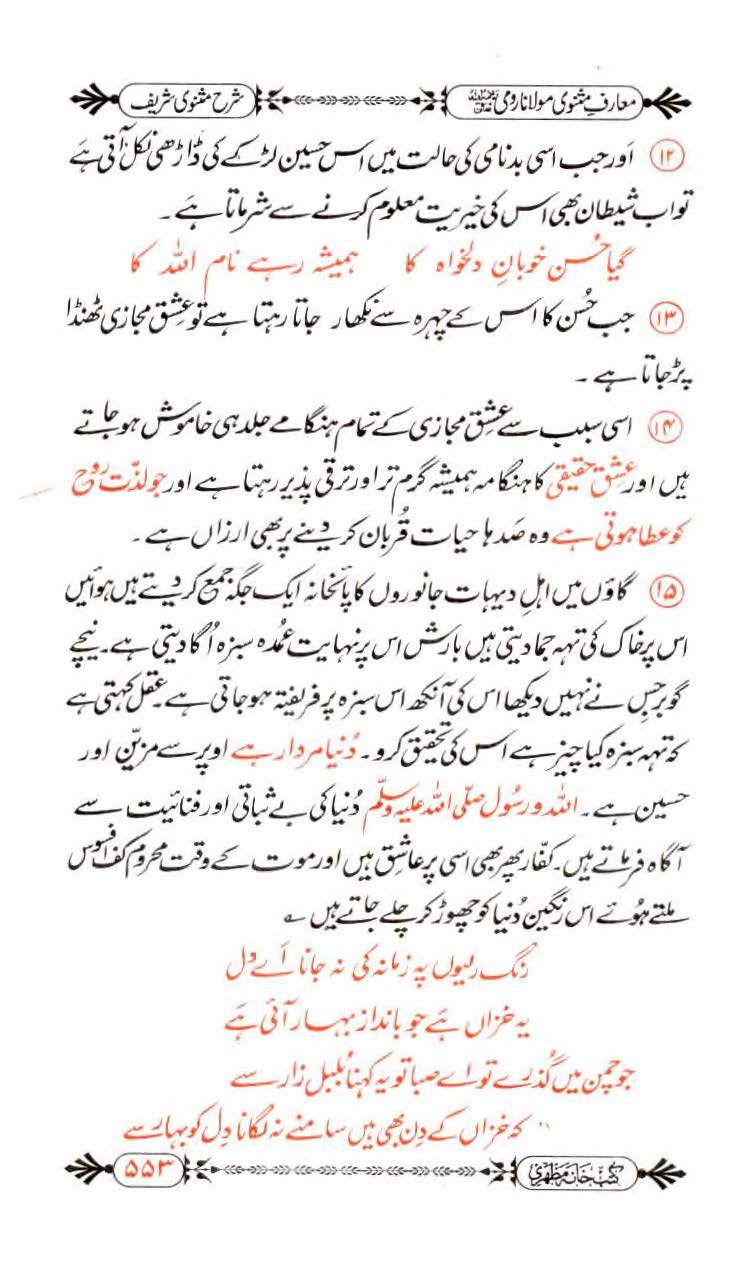 معارفِ مثنوی مولانا رومی رحمۃ اللہ علیہ
شرح مثنوی شریف
⑫ اَور جب اسی بدنامی کی حالت میں اس حسین لڑکے کی ڈاڑھی نکل آتی ہَے
تو اب شیطان بھی اس کی خیریت معلوم کرنے سے شرماتا ہَے۔
گیا حُسن خوبانِ دلخواہ کا ہمیشہ رہے نام اللہ کا
⑬ جب حُسن کا اس کے چہرہ سے نکھار جاتا رہتا ہے تو عِشق مجازی ٹھنڈا
پڑجاتا ہے۔
⑭ اسی سبب سے عِشق مجازی کے تمام ہنگامے جلد ہی خاموش ہوجاتے
ہیں اور عِشق حقیقی کا ہنگامہ ہمیشہ گرم تر اور ترقی پذیر رہتا ہے اور جو لذّت روح
کو عطا ہوتی ہے وہ صَدہا حیات قُربان کردینے پر بھی ارزاں ہے۔
⑮ گاؤں میں اہلِ دیہات جانوروں کا پائخانہ ایک جگہ جمع کردیتے ہیں ہوائیں
اس پر خاک کی تہہ جمادیتی ہیں بارش اس پر نہایت عُمدہ سبزہ اُگادیتی ہے۔ نیچے
گوبر جس نے نہیں دیکھا اس کی آنکھ اس سبزہ پر فریفتہ ہوجاتی ہے۔ عقل کہتی ہے
کہ تہہ سبزہ کیا چیز ہے اس کی تحقیق کرو۔ دُنیا مردار ہے اوپر سے مزیّن اور
حسین ہے۔ اللہ و رسُول صلّی اللہ علیہ وسلّم دُنیا کی بے ثباتی اور فنائیت سے
آگاہ فرماتے ہیں۔ کفّار پھر بھی اسی پر عاشق ہیں اور موت کے وقت محروم کف افسوس
ملتے ہُوئے اس رنگین دُنیا کو چھوڑ کر چلے جاتے ہیں ؎
رنگ رلیوں پہ زمانہ کی نہ جانا اَے دل
یہ خزاں ہَے جو بانداز بہار آئی ہَے
جو چمن میں گُذرے تو اے صبا تو یہ کہنا بُلبل زار سے
کہ خزاں کے دِن بھی ہیں سامنے نہ لگانا دِل کو بہار سے
کتب خانہ مظہری
۵۵۳